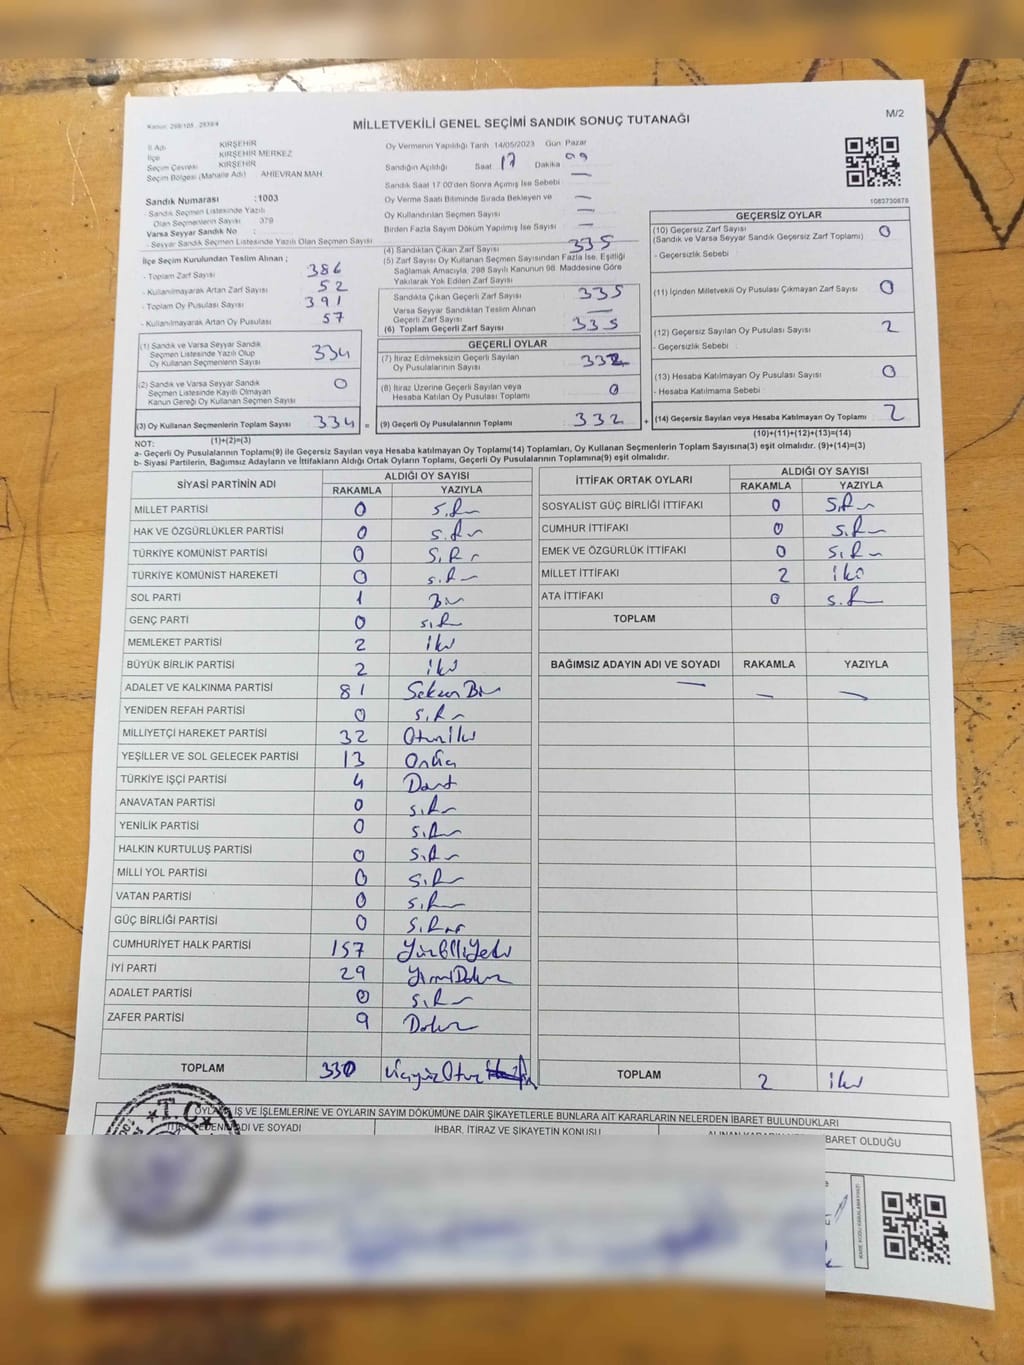 Kanun: 298/105 , 2839/4
M/2
MİLLETVEKİLİ GENEL SEÇİMİ SANDIK SONUÇ TUTANAĞI
İl Adı KIRŞEHİR
İlçe KIRŞEHİR MERKEZ
Seçim Çevresi KIRŞEHİR
Seçim Bölgesi (Mahalle Adı) AHİEVRAN MAH
Sandık Numarası :1003
- Sandık Seçmen Listesinde Yazılı
Olan Seçmenlerin Sayısı 379
Varsa Seyyar Sandık No :
- Seyyar Sandık Seçmen Listesinde Yazılı Olan Seçmen Sayısı
İlçe Seçim Kurulundan Teslim Alınan ;
- Toplam Zarf Sayısı 386
- Kullanılmayarak Artan Zarf Sayısı 52
- Toplam Oy Pusulası Sayısı 391
- Kullanılmayarak Artan Oy Pusulası 57
(1) Sandık ve Varsa Seyyar Sandık
Seçmen Listesinde Yazılı Olup
Oy Kullanan Seçmenlerin Sayısı 334
(2) Sandık ve Varsa Seyyar Sandık
Seçmen Listesinde Kayıtlı Olmayan
Kanun Gereği Oy Kullanan Seçmen Sayısı 0
(3) Oy Kullanan Seçmenlerin Toplam Sayısı 334 =
Oy Vermenin Yapıldığı Tarih 14/05/2023 Gün Pazar
Sandığın Açıldığı Saat 17 Dakika 09
Sandık Saat 17:00'den Sonra Açılmış İse Sebebi —
Oy Verme Saati Bitiminde Sırada Bekleyen ve —
Oy Kullandırılan Seçmen Sayısı —
Birden Fazla Sayım Döküm Yapılmış İse Sayısı —
(4) Sandıktan Çıkan Zarf Sayısı 335
(5) Zarf Sayısı Oy Kullanan Seçmen Sayısından Fazla İse, Eşitliği
Sağlamak Amacıyla, 298 Sayılı Kanunun 98. Maddesine Göre
Yakılarak Yok Edilen Zarf Sayısı
Sandıkta Çıkan Geçerli Zarf Sayısı 335
Varsa Seyyar Sandıktan Teslim Alınan
Geçerli Zarf Sayısı —
(6) Toplam Geçerli Zarf Sayısı 335
GEÇERLİ OYLAR
(7) İtiraz Edilmeksizin Geçerli Sayılan
Oy Pusulalarının Sayısı 332
(8) İtiraz Üzerine Geçerli Sayılan veya
Hesaba Katılan Oy Pusulası Toplamı 0
(9) Geçerli Oy Pusulalarının Toplamı 332 +
1083730878
GEÇERSİZ OYLAR
(10) Geçersiz Zarf Sayısı 0
(Sandık ve Varsa Seyyar Sandık Geçersiz Zarf Toplamı)
- Geçersizlik Sebebi
(11) İçinden Milletvekili Oy Pusulası Çıkmayan Zarf Sayısı 0
(12) Geçersiz Sayılan Oy Pusulası Sayısı 2
- Geçersizlik Sebebi
(13) Hesaba Katılmayan Oy Pusulası Sayısı 0
- Hesaba Katılmama Sebebi
(14) Geçersiz Sayılan veya Hesaba Katılmayan Oy Toplamı 2
NOT: (1)+(2)=(3) (10)+(11)+(12)+(13)=(14)
a- Geçerli Oy Pusulalarının Toplamı(9) ile Geçersiz Sayılan veya Hesaba Katılmayan Oy Toplamı(14) Toplamları, Oy Kullanan Seçmenlerin Toplam Sayısına(3) eşit olmalıdır. (9)+(14)=(3)
b- Siyasi Partilerin, Bağımsız Adayların ve İttifakların Aldığı Ortak Oyların Toplamı, Geçerli Oy Pusulalarının Toplamına(9) eşit olmalıdır.
SİYASİ PARTİNİN ADI ALDIĞI OY SAYISI
RAKAMLA YAZIYLA
MİLLET PARTİSİ 0 sıfır
HAK VE ÖZGÜRLÜKLER PARTİSİ 0 sıfır
TÜRKİYE KOMÜNİST PARTİSİ 0 sıfır
TÜRKİYE KOMÜNİST HAREKETİ 0 sıfır
SOL PARTİ 1 Bir
GENÇ PARTİ 0 sıfır
MEMLEKET PARTİSİ 2 iki
BÜYÜK BİRLİK PARTİSİ 2 iki
ADALET VE KALKINMA PARTİSİ 81 Seksen Bir
YENİDEN REFAH PARTİSİ 0 sıfır
MİLLİYETÇİ HAREKET PARTİSİ 32 Otuz iki
YEŞİLLER VE SOL GELECEK PARTİSİ 13 Onüç
TÜRKİYE İŞÇİ PARTİSİ 4 Dört
ANAVATAN PARTİSİ 0 sıfır
YENİLİK PARTİSİ 0 sıfır
HALKIN KURTULUŞ PARTİSİ 0 sıfır
MİLLİ YOL PARTİSİ 0 sıfır
VATAN PARTİSİ 0 sıfır
GÜÇ BİRLİĞİ PARTİSİ 0 sıfır
CUMHURİYET HALK PARTİSİ 157 YüzElliYedi
İYİ PARTİ 29 YirmiDokuz
ADALET PARTİSİ 0 sıfır
ZAFER PARTİSİ 9 Dokuz
TOPLAM 330 üçyüzOtuz
İTTİFAK ORTAK OYLARI ALDIĞI OY SAYISI
RAKAMLA YAZIYLA
SOSYALİST GÜÇ BİRLİĞİ İTTİFAKI 0 sıfır
CUMHUR İTTİFAKI 0 sıfır
EMEK VE ÖZGÜRLÜK İTTİFAKI 0 sıfır
MİLLET İTTİFAKI 2 iki
ATA İTTİFAKI 0 sıfır
TOPLAM
BAĞIMSIZ ADAYIN ADI VE SOYADI RAKAMLA YAZIYLA
— — —
TOPLAM 2 iki
OYLAMA İŞ VE İŞLEMLERİNE VE OYLARIN SAYIM DÖKÜMÜNE DAİR ŞİKAYETLERLE BUNLARA AİT KARARLARIN NELERDEN İBARET BULUNDUKLARI
İTİRAZ EDENİN ADI VE SOYADI İHBAR, İTİRAZ VE ŞİKAYETİN KONUSU ALINAN KARARIN NEDEN İBARET OLDUĞU
T.C.